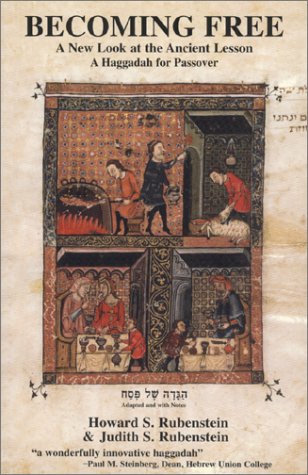 BECOMING FREE
A New Look at the Ancient Lesson
A Haggadah for Passover
ונתנו
הגדה של פסח
Adapted and with Notes
Howard S. Rubenstein
& Judith S. Rubenstein
“a wonderfully innovative haggadah”
–Paul M. Steinberg, Dean, Hebrew Union College